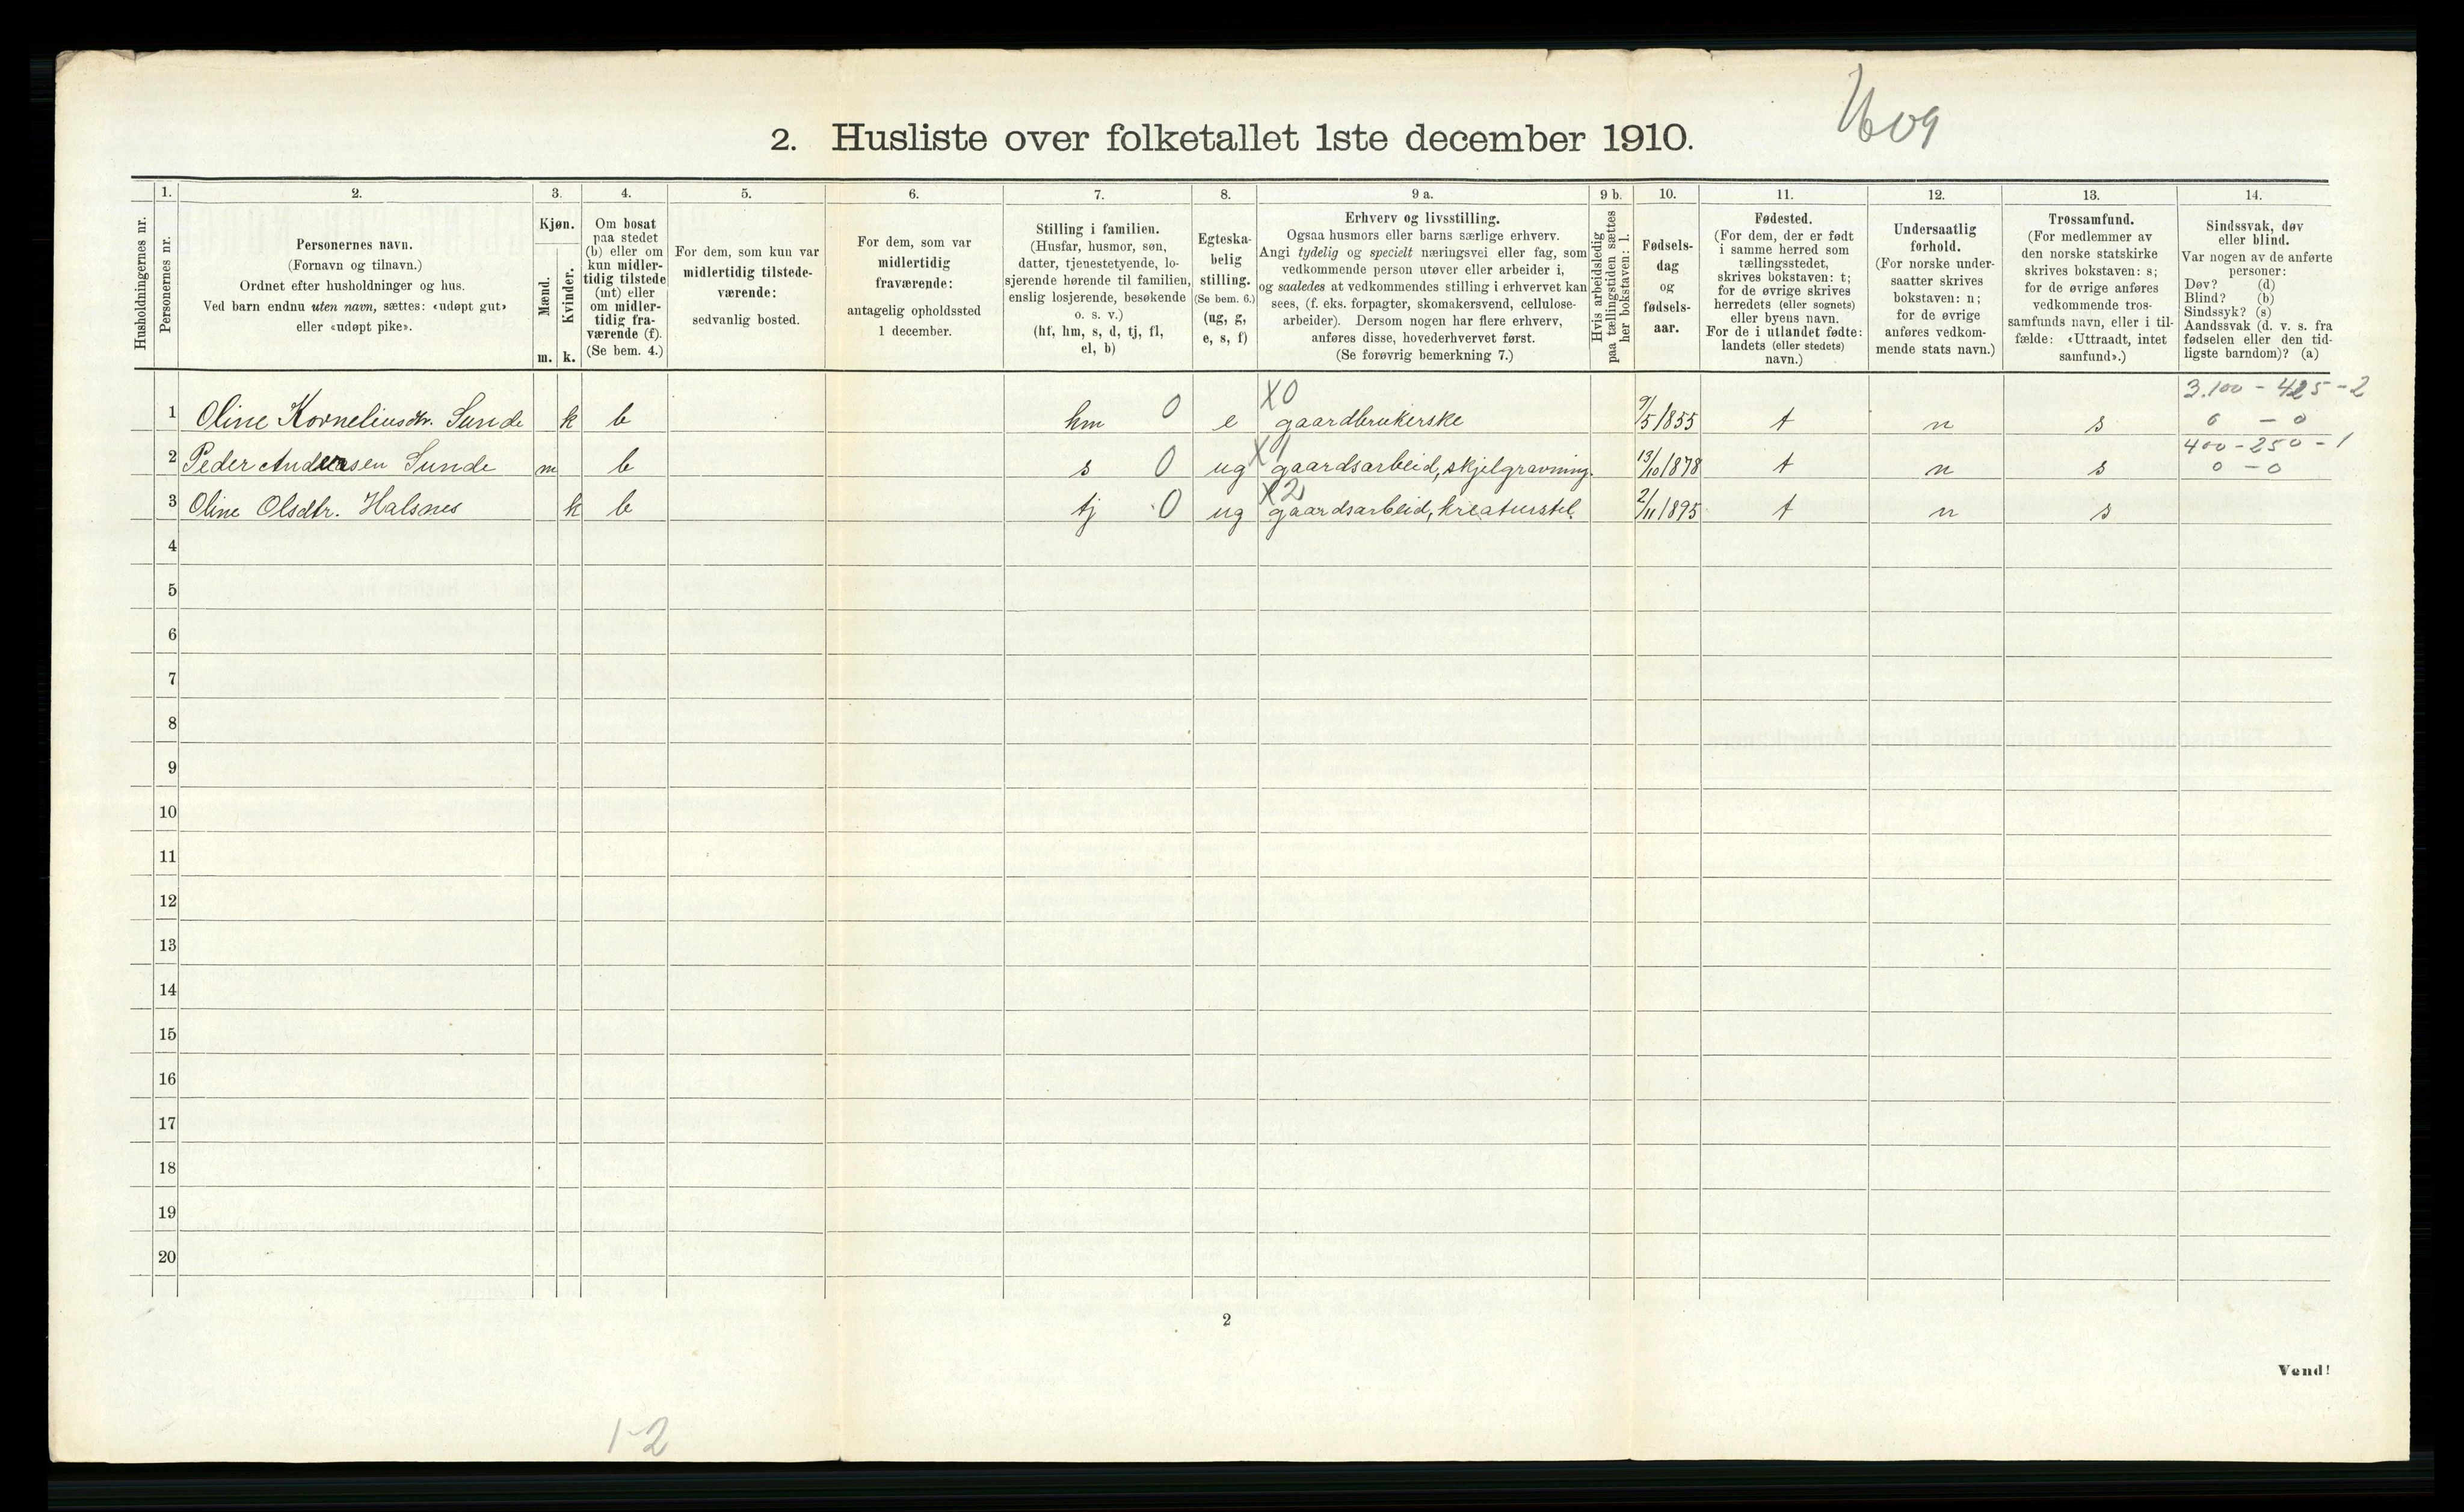 2. Husliste over folketallet 1ste december 1910.
1. 2. 3. 4. 5. 6. 7. 8. 9 a. 9 b. 10. 11. 12. 13. 14.
Husholdningernes nr.
Personernes nr.
Personernes navn.
(Fornavn og tilnavn.)
Ordnet efter husholdninger og hus.
Ved barn endnu uten navn, sættes: «udøpt gut»
eller «udøpt pike».
Kjøn.
Mænd.
m.
Kvinder.
k.
Om bosat
paa stedet
(b) eller om
kun midler-
tidig tilstede
(mt) eller
om midler-
tidig fra-
værende (f).
(Se bem. 4.)
For dem, som kun var
midlertidig tilstede-
værende:
sedvanlig bosted.
For dem, som var
midlertidig
fraværende:
antagelig opholdssted
1 december.
Stilling i familien.
(Husfar, husmor, søn,
datter, tjenestetyende, lo-
sjerende hørende til familien,
enslig losjerende, besøkende
o. s. v.)
(hf, hm, s, d, tj, fl,
el, b)
Egteska-
belig
stilling.
(Se bem. 6.)
(ug, g,
e, s, f)
Erhverv og livsstilling.
Ogsaa husmors eller barns særlige erhverv.
Angi tydelig og specielt næringsvei eller fag, som
vedkommende person utøver eller arbeider i,
og saaledes at vedkommendes stilling i erhvervet kan
sees, (f. eks. forpagter, skomakersvend, cellulose-
arbeider). Dersom nogen har flere erhverv,
anføres disse, hovederhvervet først.
(Se forøvrig bemerkning 7.)
Hvis arbeidsledig
paa tællingstiden sættes
her bokstaven: l.
Fødsels-
dag
og
fødsels-
aar.
Fødested.
(For dem, der er født
i samme herred som
tællingsstedet,
skrives bokstaven: t;
for de øvrige skrives
herredets (eller sognets)
eller byens navn.
For de i utlandet fødte:
landets (eller stedets)
navn.)
Undersaatlig
forhold.
(For norske under-
saatter skrives
bokstaven: n;
for de øvrige
anføres vedkom-
mende stats navn.)
Trossamfund.
(For medlemmer av
den norske statskirke
skrives bokstaven: s;
for de øvrige anføres
vedkommende tros-
samfunds navn, eller i til-
fælde: «Uttraadt, intet
samfund».)
Sindssvak, døv
eller blind.
Var nogen av de anførte
personer:
Døv? (d)
Blind? (b)
Sindssyk? (s)
Aandssvak (d. v. s. fra
fødselen eller den tid-
ligste barndom)? (a)
X0 3.100 - 425 - 2
1 Oline Korneliusdtr. Sunde k b hm 0 e gaardbrukerske 9/5 1855 t n s 0 - 0
X1 400 - 250 - 1
2 Peder Andersen Sunde m b s 0 ug gaardsarbeid, skjelgravning. 13/10 1878 t n s 0 - 0
X2
3 Oline Olsdtr. Halsnes k b tj 0 ug gaardsarbeid, kreaturstel. 2/11 1895 t n s
4
5
6
7
8
9
10
11
12
13
14
15
16
17
18
19
20
2
Vend!
1-2